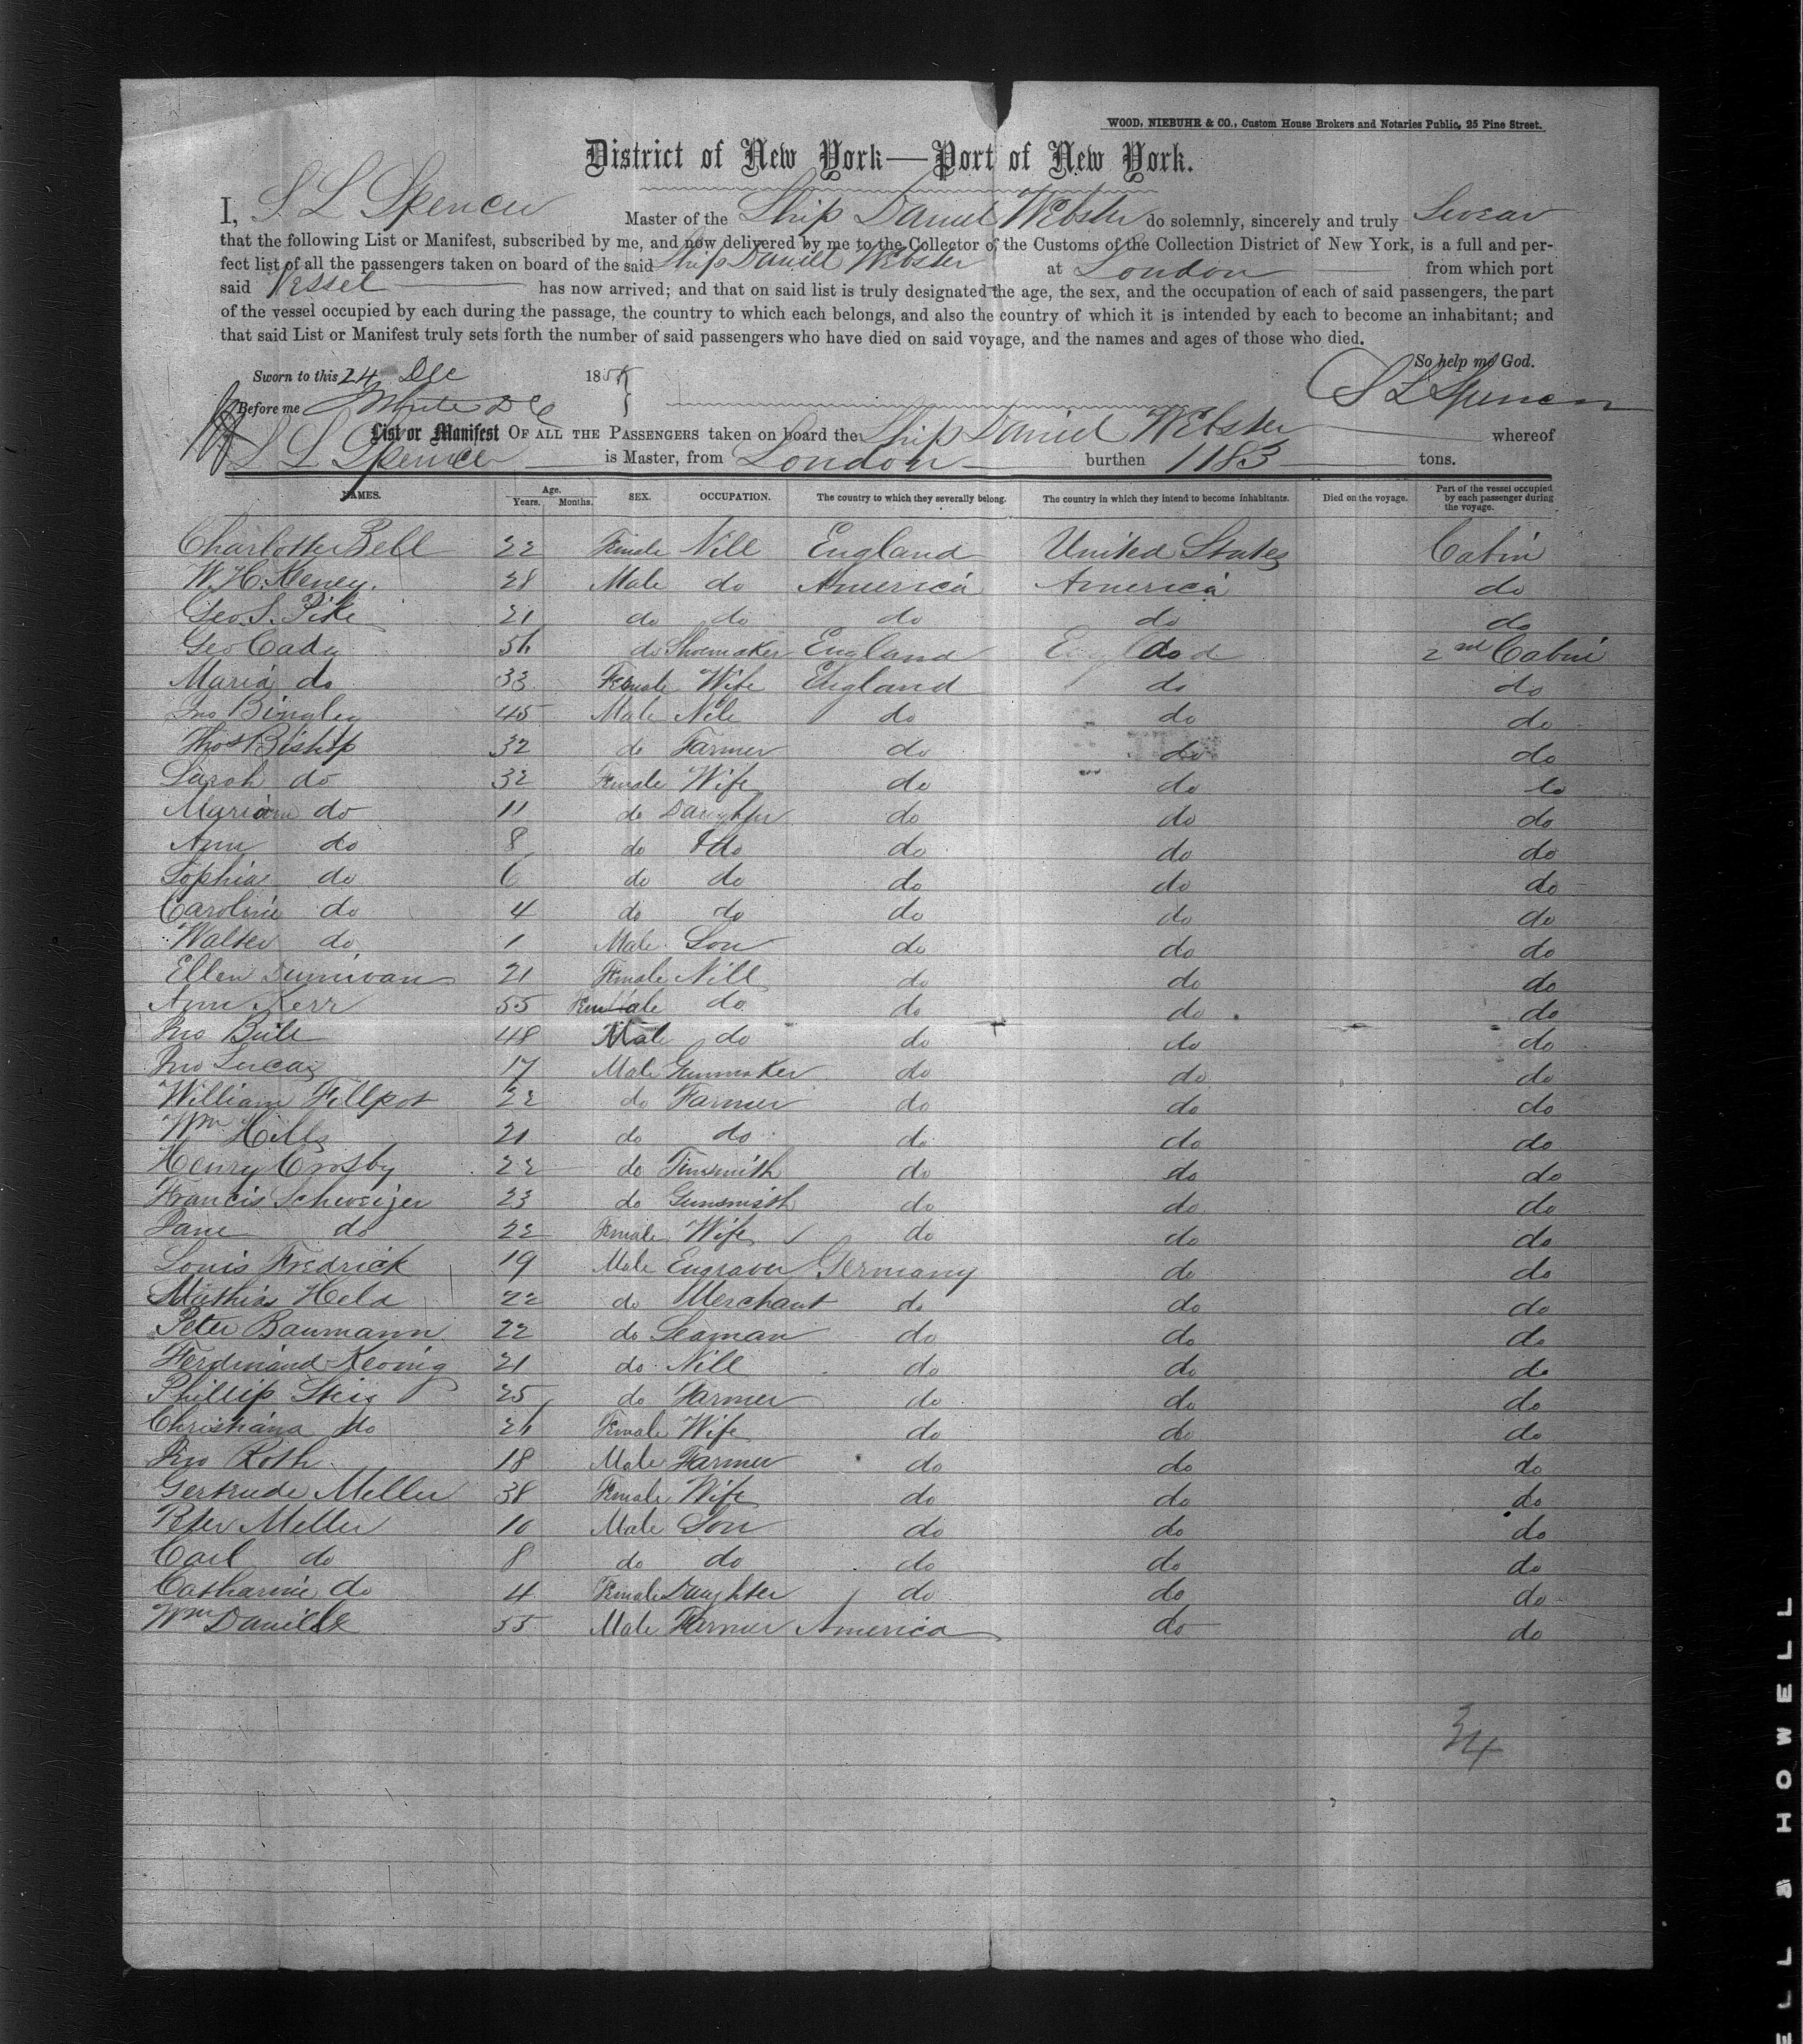 WOOD, NIEBUHR & CO., Custom House Brokers and Notaries Public, 25 Pine Street.
District of New York—Port of New York.
I, S. L Spencer Master of the Ship Daniel Webster do solemnly, sincerely and truly Swear
that the following List or Manifest, subscribed by me, and now delivered by me to the Collector of the Customs of the Collection District of New York, is a full and per-
fect list of all the passengers taken on board of the said Ship Daniel Webster at London from which port
said Vessel has now arrived; and that on said list is truly designated the age, the sex, and the occupation of each of said passengers, the part
of the vessel occupied by each during the passage, the country to which each belongs, and also the country of which it is intended by each to become an inhabitant; and
that said List or Manifest truly sets forth the number of said passengers who have died on said voyage, and the names and ages of those who died.
So help me God.
Sworn to this 24 Dec 185
S L Spencer
Before me
List or Manifest OF ALL THE PASSENGERS taken on board the Ship Daniel Webster whereof
S L Spencer is Master, from London burthen 1183 tons.
NAMES. Age. Years. Months. SEX. OCCUPATION. The country to which they severally belong. The country in which they intend to become inhabitants. Died on the voyage. Part of the vessel occupied by each passenger during the voyage.
Charlotte Bell 22 Female Nill England United States Cabin
W. H. Keney. 28 Male do America America do
Geo. S. Pike 21 do do do do do
Geo Cady do Shoemaker England do 2nd Cabin
Maria do 33 Female Wife England do do
Jno Bingley 45 Male Nile do do do
Thos Bishop 32 do Farmer do do do
Sarah do 32 Female Wife do do do
Mariam do 11 do Daughter do do do
Ann do 8 do do do do do
Sophia do 6 do do do do do
Caroline do 4 do do do do do
Walter do 1 Male Son do do do
Ellen Dunivan 21 Female Nill do do do
Ann Kerr 55 Female do do do do
Jno Bull 48 Male do do do do
Jno Lucas 17 Male Gunmaker do do do
William Fillpot 22 do Farmer do do do
Wm Hills 21 do do do do do
Henry Crosby 22 do Tinsmith do do do
Francis Schweijer 23 do Gunsmith do do do
Jane do 22 Female Wife do do do
Louis Fredrick 19 Male Engraver Germany do do
Mathias Held 22 do Merchant do do do
Peter Baumann 22 do Seaman do do do
Ferdinand Keonig 21 do Nill do do do
Phillip 25 do Farmer do do do
Christiana do Female Wife do do do
Jno Roth 18 Male Farmer do do do
Gertrude Meller 38 Female Wife do do do
Peter Meller 10 Male Son do do do
Carl do 8 do do do do do
Catharine do 4 Female Daughter do do do
Wm Daniells 55 Male Farmer America do do
34
HOWELL